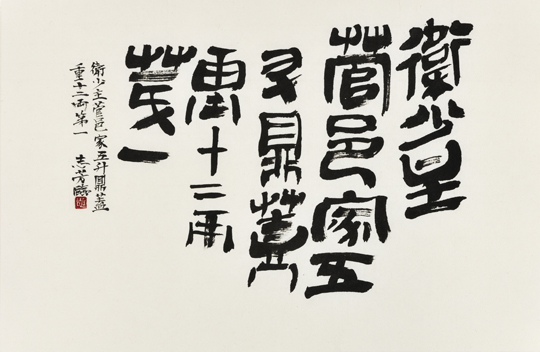 衛少主
菅邑家五
升鼎蓋
重十二兩
苐一
衛少主菅邑家五升鼎蓋
重十二兩第一 志芳臨